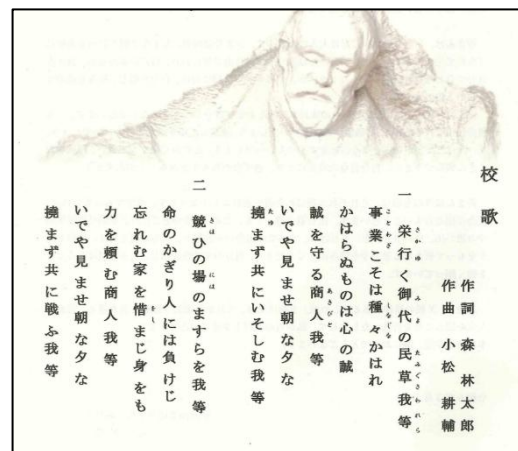 校歌
作詞 森 林太郎
作曲 小松 耕輔
一 栄行く御代の民草我等
事業こそは種々かはれ
かはらぬものは心の誠
誠を守る商人我等
いでや見ませ朝な夕な
撓まず共にいそしむ我等
二 競ひの場のますらを我等
命のかぎり人には負けじ
忘れむ家を惜まじ身をも
力を頼む商人我等
いでや見ませ朝な夕な
撓まず共に戦ふ我等